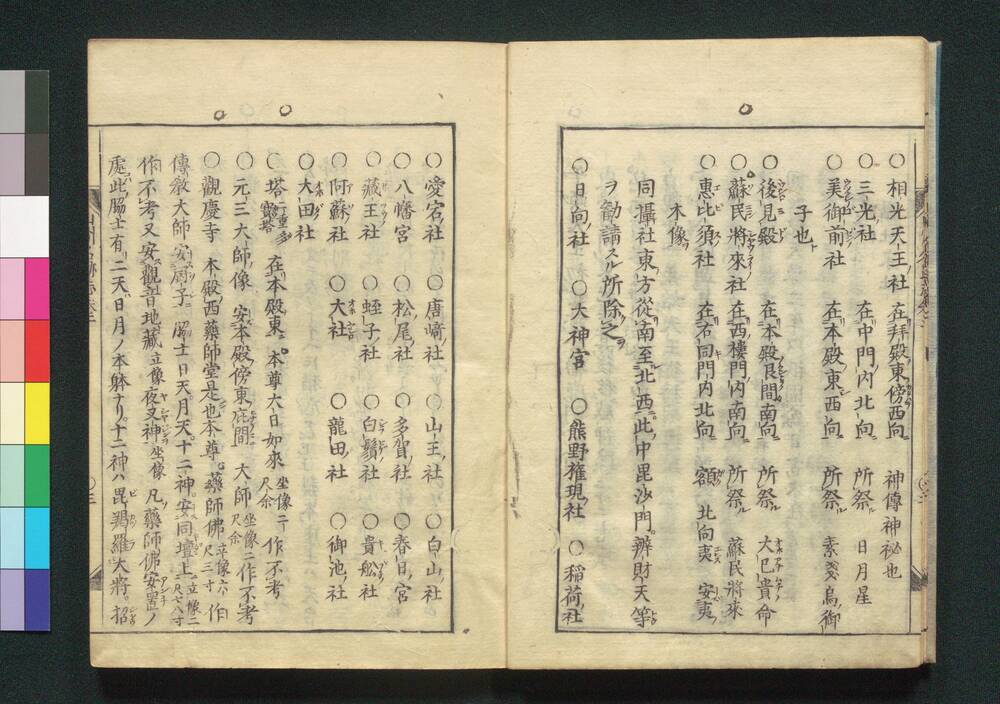 ○相光天王社 在拜殿東傍西向 神傳神秘也
○三光社 在中門内北向 所祭 日月星
○美御前社 在本殿東西向 所祭 素戔烏御
子也
○後見殿 在本殿艮間南向 所祭 大巳貴命
○蘇民將來社 在西樓門内南向 所祭 蘇民將來
○惠比須社 在不同門内北向 額 北向夷 安夷
木像
同攝社東方從南至北西此中毘沙門辨財天等
ヲ勧請スル所除之
○日向社 ○大神宮 ○熊野権現社 ○稲荷社
○愛宕社 ○唐﨑社 ○山王社 ○白山社
○八幡宮 ○松尾社 ○多賀社 ○春日宮
○藏王社 ○蛭子社 ○白鬚社 ○貴舩社
○阿蘇社 ○大社 ○龍田社 ○御池社
○大田社
○塔 二重多寳塔 在本殿東 本尊大日如來 坐像二尺余 作不考
○元三大師像 安本殿傍東庇間 大師 坐像二尺余 作不考
○觀慶寺 本殿西藥師堂是也本尊藥師佛 立像六尺三寸 作
傳教大師安厨子 脇士日天月天十二神安同壇上 立像二尺七八寸
作不考又安觀音地藏 立像 夜叉神 坐像 凡藥師佛安置ノ
處此脇士有二天日月ノ本躰ナリ十二神ハ毘羯羅大將招